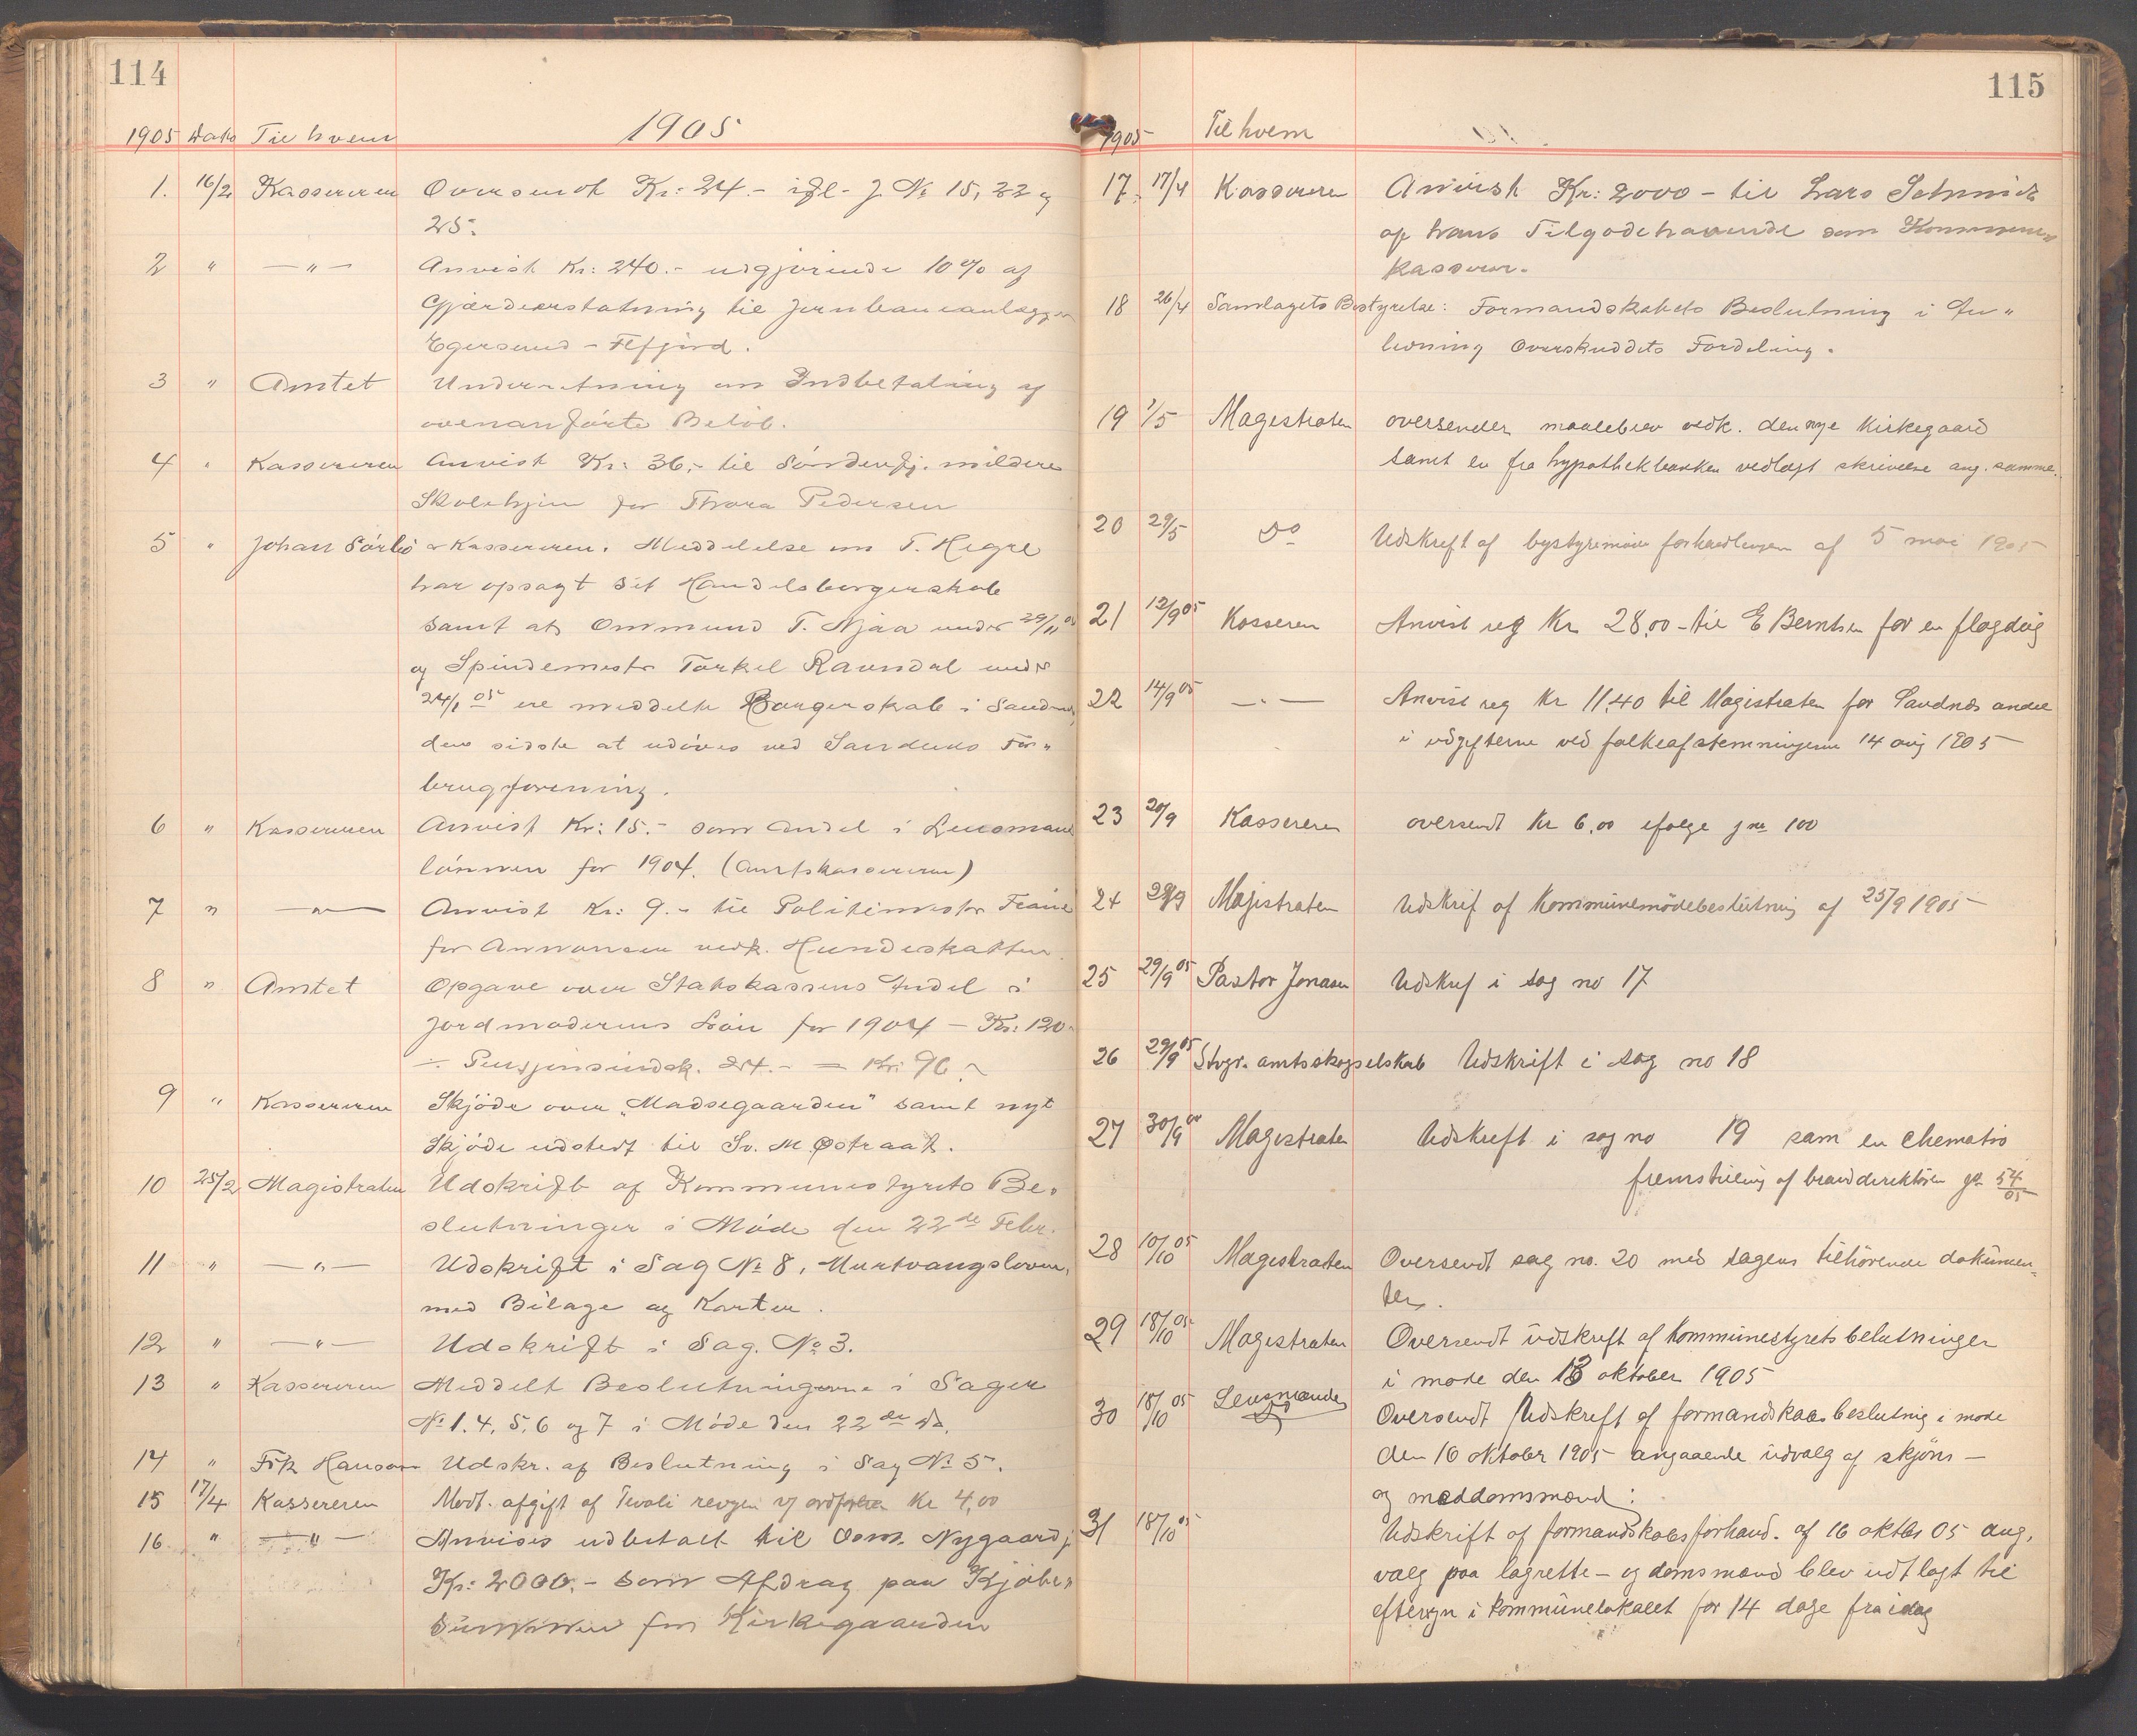 114
1905 Dato Til hvem 1905
1. 16/2 Kassereren Oversendt Kr: 24.- ifl. J. № 15, 22 og
25.
2 " —"— Anvist Kr: 240.- udgjørende 10% af
Gjærdeerstatning til Jernbaneanlægget
Egersund - Flekkefjord.
3 " Amtet Underretning om Indbetaling af
ovenanførte Beløb.
4 " Kassereren Anvist Kr: 36,- til Søndenfj. mildere
Skolehjem for Thora Pedersen
5 " Johan Sørbø & Kassereren. Meddelelse om T. Hegre
har opsagt sit Handelsborgerskab
samt at Ommund T. Njaa under 29/11 05
og Spindemester Torkel Ravndal under
24/1 05 ere meddelte Borgerskab i Sandnes,
den sidste at udøves ved Sandnes For"
brugforening.
6 " Kassereren Anvist Kr: 15.- som Andel i Lensmand
lønnen for 1904. (Amtskassereren)
7 " —"— Anvist Kr: 9.- til Politimester
for Annoncen vedk. Hundeskatten.
8 " Amtet Opgave over Statskassens Andel i
Jordmoderens Løn for 1904 - Kr: 120.-
÷ Pensjonsindsk. 24.- = Kr: 96.-
9 " Kassereren Skjøde over "Madsegaarden" samt nyt
Skjøde udstedt til Sv. M. Østraat.
10 25/2 Magistraten Udskrift af Kommunestyrets Be"
slutninger i Møde den 22de Febr.
11 " —"— Udskrift i Sag № 8, Murtvangsloven,
med Bilage og Karter.
12 " —"— Udskrift i Sag. № 3.
13 " Kassereren Meddelt Beslutningerne i Sager
№ 1. 4, 5, 6 og 7 i Møde den 22de ds.
14 " Frk Hanson Udskr. af Beslutning i Sag № 5.
15 17/4 Kassereren Modt. afgift af Tivoli revyen af Kr 4,00
16 " —"— Anvises udbetalt til Osm. Nygaard j.
Kr: 2000.- som Afdrag paa Kjøbe"
summen for Kirkegaarden
115
1905 Til hvem
17. 17/4 Kasserere Anvist Kr: 2000 - til Lars Schmidt
af hans Tilgodehavende som Kommune"
kasserer.
18 26/4 Samlagets Bestyrelse: Formandskabets Beslutning i An"
ledning Overskuddets Fordeling.
19 1/5 Magestraten oversender maalebrev vedk. den nye Kirkegaard
samt en fra hypothekbanken vedlagt skrivelse ang. samme.
20 29/5 Do Udskrift af bystyremøde forhandlingen af 5 mai 1905
21 12/9 05 Kasseren Anvist reg Kr 28,00 - til E Berntsen for en flagdug
22 14/9 05 —"— Anvist reg Kr 11,40 til Magistraten for Sandnes andel
i udgifterne ved folkeafstemningerne 14 aug 1905
23 20/9 Kassereren oversendt Kr 6,00 ifølge j no 100
24 29/9 Majistraten Udskrif af Kommunemødebeslutning af 25/9 1905
25 29/9 05 Pastor Jonasen Udskrif i sag no 17
26 29/9 05 Stvgr. amtsskogselskab Udskrift i sag no 18
27 30/9 Magestraten Udskrift i sag no 19 sam en chematis
fremstilling af branddirektøren jo 54/05
28 10/10 05 Magestraten Oversendt sag no. 20 med sagens tilhørende dokumen=
ter.
29 18/10 05 Magestraten Oversendt udskrift af Kommunestyrets belutninger
i møde den 13 oktober 1905
30 18/10 05 Lensmanden Oversendt Udskrift af formandskabsbeslutnig i møde
den 16 oktober 1905 angaaende udvalg af skjøns -
og meddomsmænd:
31 18/10 05 Udskrift af formandskabsforhand. af 16 oktbr 05 ang.
valg paa lagrette - og domsmænd blev udtlagt til
eftersyn i kommunelokalet for 14 dage fra idag